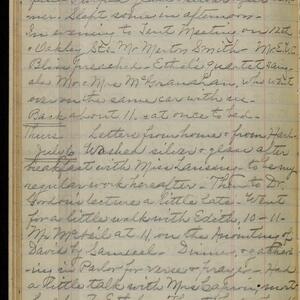 ner. Slept some in afternoon.
In evening to Tent Meeting on 12th
+ Oakley Sts. Mr Merton Smith - Mr E. V. C.
Blain preached. - Ethel's Quartet sang.
also Mr + Mrs McGranahan, who went
over on the same car with us.
Back about 11. + at once to bed. -
Thurs. Letters from home + from Harl.
July 6 Washed silver + glass after
breakfast with Miss Lansing - to be my
regular work hereafter. - Then to Dr.
lecture a little late - Went
for a little walk with Edith, 10 - 11 -
Mr McNeil at 11, on the Anointing of
David by Samuel - Dinner, + gather-
ing in Parlor for verses + prayer. - Had
a little talk with Mrs